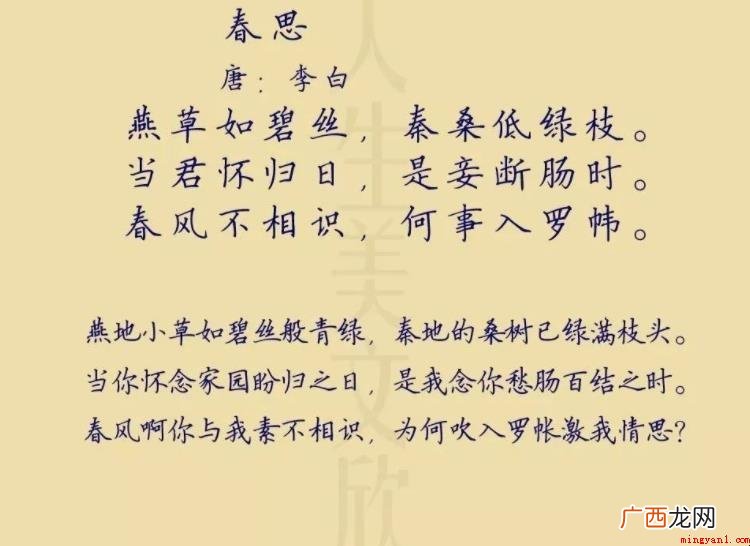 春思
唐：李白
燕草如碧丝，秦桑低绿枝。
当君怀归日，是妾断肠时。
春风不相识，何事入罗帏。
燕地小草如碧丝般青绿，秦地的桑树已绿满枝头。
当你怀念家园盼归之日，是我念你愁肠百结之时。
春风啊你与我素不相识，为何吹入罗帐激我情思？
人生美文欣
广西龙网
mingyan1.com